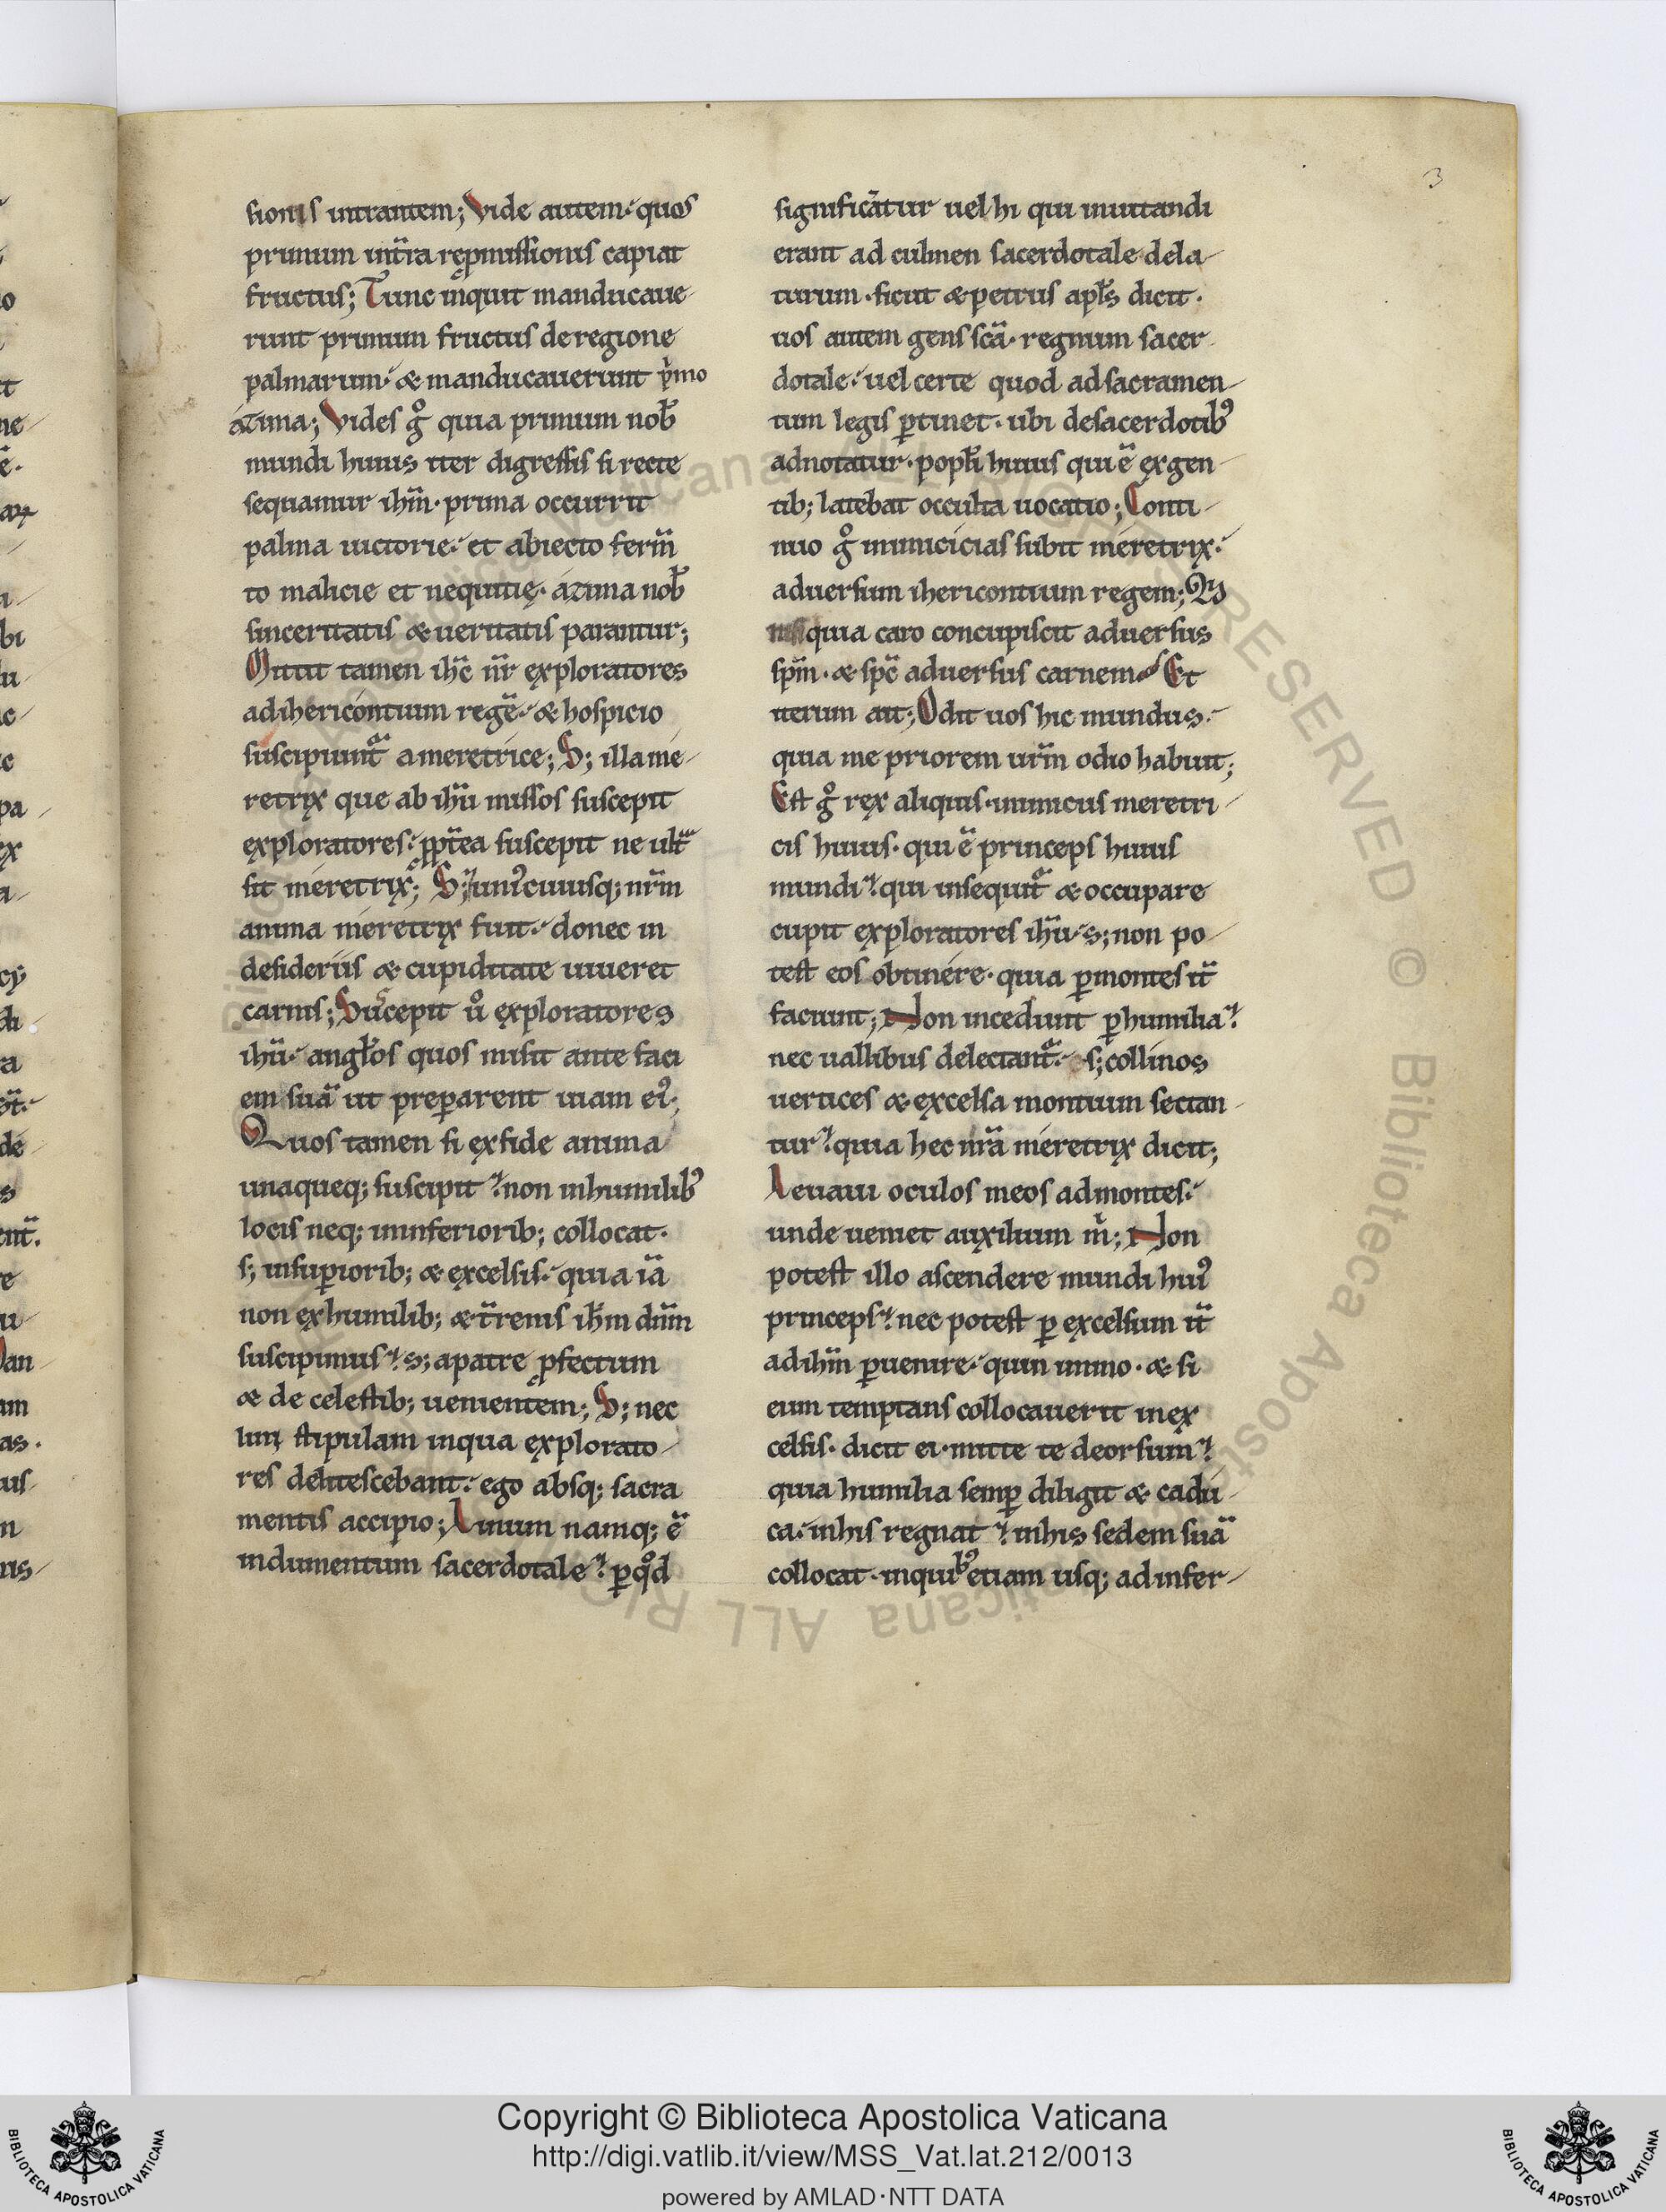 sionis intrantem; Vide autem quos
primum int̄ra rep̱missionis capiat
fructus; Tunc inquit manducaue
runt primum fructus de regione
palmarum. & manducauerunt p̱mo
azima; Vides g̊ quia primum nob̄
mundi huius iter digressis si recte
sequamur ih̄m· prima occurrit
palma uictorie. et abiecto ferm̄
to malicie et nequitię. azima nob̄
sinceritatis & ueritatis parantur;
Mittit tamen ih̄c n̄r exploratores
ad ihericontium regē. & hospicio
suscipiunt᷑ a meretrice; S; illa me
retrix que ab ih̄u missos suscepit
exploratores. p̱p̄tea suscepit ne ultᷓ
sit meretrix; S; uni᷒cuiusq; nr̄m
anima meretrix fuit. donec in
desideriis & cupiditate uiueret
carnis; Suscepit ů exploratores
ih̄u. angl̄os quos misit ante faci
em suā ut prep̱arent uiam ei᷒;
Quos tamen si ex fide anima
unaqueq; suscipit non in humilib᷒
locis neq; in inferiorib; collocat.
s; in sup̱iorib; & excelsis. quia iā
non ex humilib; & t̄renis ih̄m dn̄m
suscipimus s; a patre p̱fectum
& de celestib; uenientem; S; nec
lini stipulam in qua explorato
res delitescebant. ego absq; sacra
mentis accipio; Linum namq; ē
indumentum sacerdotale p̱ qd̊
significātur uel hi qui inuitandi
erant ad culmen sacerdotale dela
turum. sicut & petrus apl̄s dicit.
uos autem gens sc̄a. regnum sacer
dotale. uel certe quod ad sacramen
tum legis p̱tinet. ubi de sacerdotib᷒
adnotatur. popl̄i huius qui ē ex gen
tib; latebat occulta uocatio; Conti
nuo g̊ inimicicias subit meretrix.
aduersum ihericontium regem;
quia caro concupiscit aduersus
sp̄m. & sp̄c aduersus carnem Et
iterum ait; Odit uos hic mundus.
quia me priorem ur̄m odio habuit;
Est g̊ rex aliquis. inimicus meretri
cis huius. qui ē princeps huius
mundi qui insequit᷑ & occupare
cupit exploratores ih̄u. s; non po
test eos obtinere. quia p̱ montes it̄
faciunt; Non incedunt p̱ humilia
nec uallibus delectant᷑. s; collinos
uertices & excelsa montium sectan
tur quia hec nr̄a meretrix dicit;
Leuaui oculos meos ad montes.
unde ueniet auxilium m̄; Non
potest illo ascendere mundi hui᷒
princeps nec potest p̱ excelsum it̄
ad ih̄m p̱uenire. quin immo. & si
eum temptans collocauerit in ex
celsis. dicit ei. mitte te deorsum
quia humilia semp̱ diligit & cadu
ca. in his regnat in his sedem suā
collocat. in quib᷒ etiam usq; ad infer
3
Copyright © Biblioteca Apostolica Vaticana
http://digi.vatlib.it/view/MSS_Vat.lat.212/0013
powered by AMLAD·NTT DATA
BIBLIOTECA APOSTOLICA VATICANA
BIBLIOTECA APOSTOLICA VATICANA